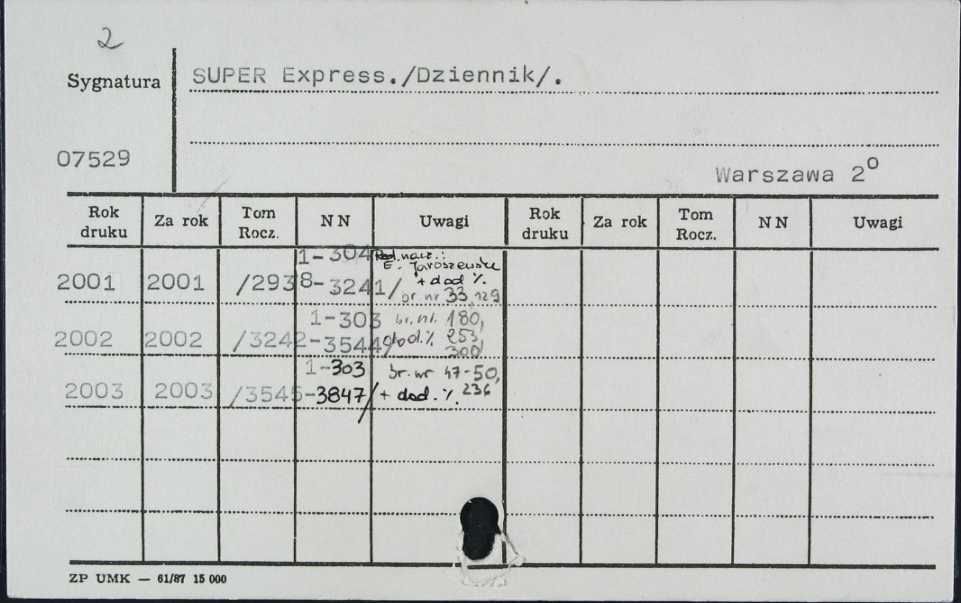 2
Sygnatura
SUPER Express./Dziennik/.
07529
Warszawa 2⁰
Rok druku Za rok Tom Rocz. NN Uwagi Rok druku Za rok Tom Rocz. NN Uwagi
1-304 Red. nacz.:
E. Jaroszewska
2001 2001 /2938-3241/ + dod %.
br. nr 33, 129
1-303 br. nr. 180,
2002 2002 /3242-3544/ dod. % 253,
300,
1-303 br. nr 47-50,
2003 2003 /3545-3847/ + dod. %. 236
ZP UMK — 61/87 15 000